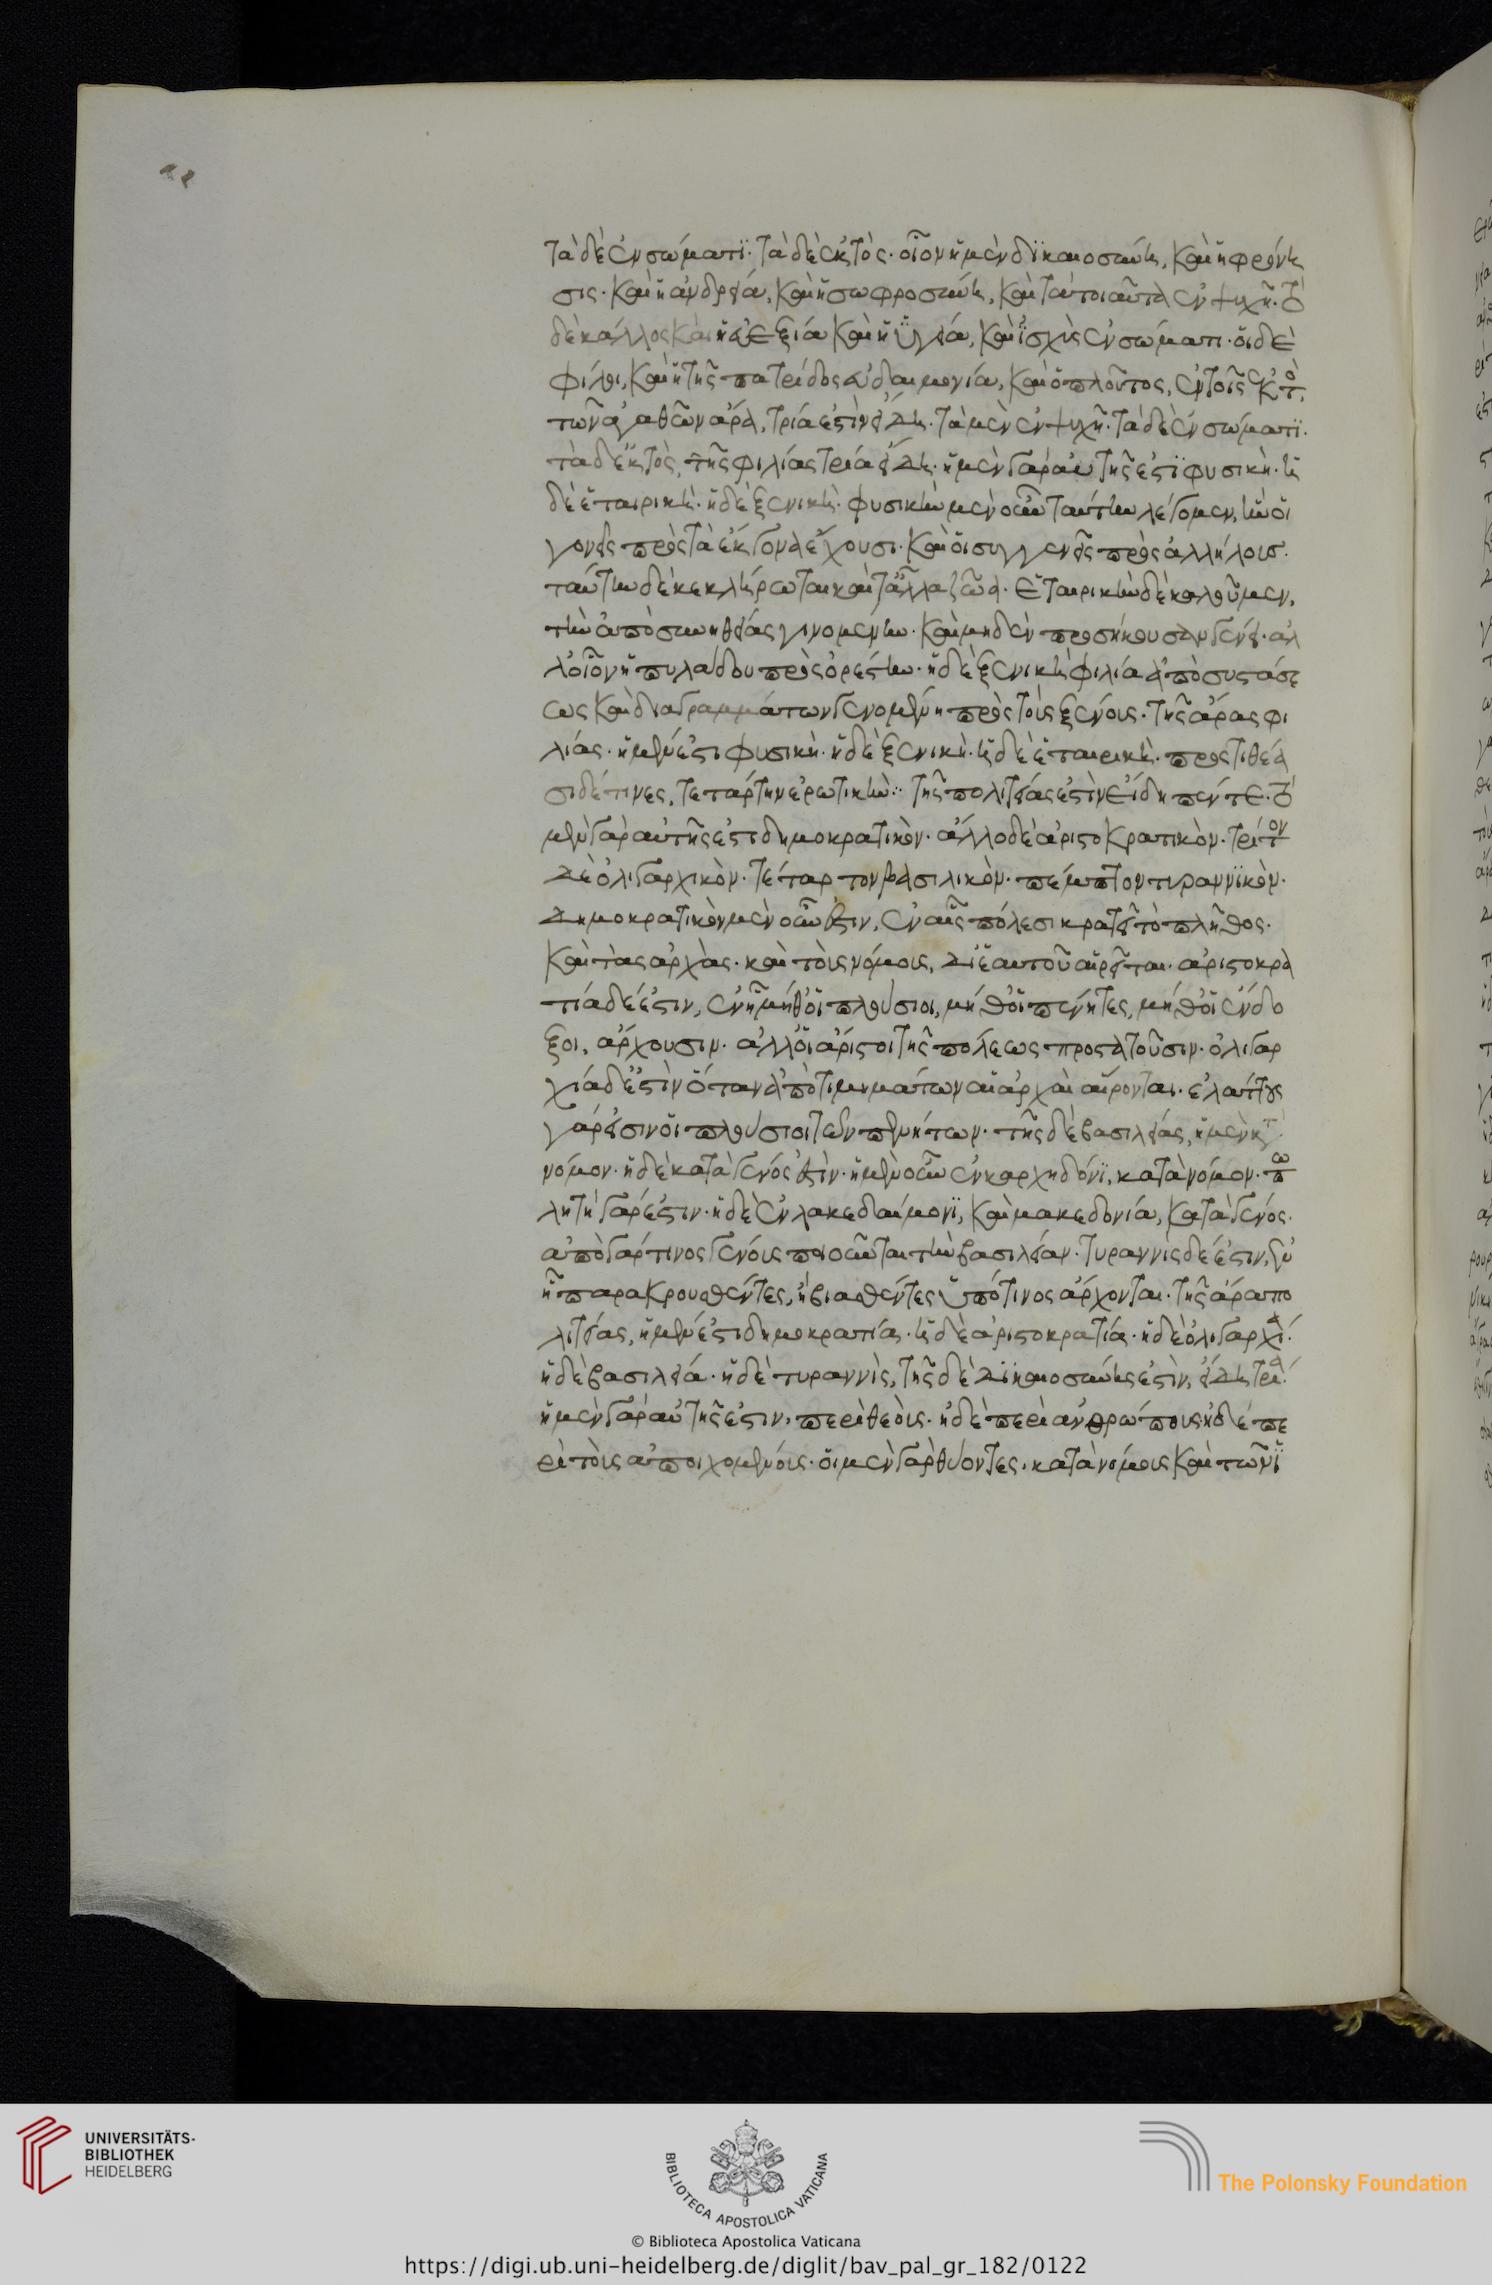 τὰ δὲ ἐν σώματι· τὰ δὲ ἐκτὸς· οἷον ἡ μὲν δικαιοσύνη, καὶ ἡ φρόνη
σις· καὶ ἡ ἀνδρεία, καὶ ἡ σωφροσύνη, καὶ τὰ τοιαῦτα ἐν ψυχῇ· τὸ
δὲ κάλλος καὶ ἡ εὐεξία καὶ ἡ ὑγεία, καὶ ἰσχὺς ἐν σώματι· οἱ δὲ
φίλοι, καὶ ἡ τῆς πατρίδος εὐδαιμονία, καὶ ὁ πλοῦτος, ἐν τοῖς ἐκτό.
τῶν ἀγαθῶν ἄρα, τρία ἐστὶν εἴδη· τὰ μὲν ἐν ψυχῇ· τὰ δὲ ἐν σώματι·
τὰ δὲ ἐκτὸς, τῆς φιλίας τρία εἴδη· ἡ μὲν γὰρ αὐτῆς ἐστι φυσικὴ· ἡ
δὲ ἑταιρικὴ· ἡ δὲ ξενικὴ· φυσικὴν μὲν οὖν ταύτην λέγομεν, ἣν οἱ
γονεῖς πρὸς τὰ ἔκγονα ἔχουσι· καὶ οἱ συγγενεῖς πρὸς ἀλλήλους·
ταύτην δὲ κεκλήρωται καὶ τἆλλα ζῶα· ἑταιρικὴν δὲ καλοῦμεν,
τὴν ἀπὸ συνηθείας γινομένην· καὶ μηδὲν προσήκουσαν γένει· ἀλ
λ' οἷον ἡ πυλάδου πρὸς ὀρέστην· ἡ δὲ ξενικὴ φιλία ἀπὸ συστάσε
ως καὶ διαγραμμάτων γενομένη πρὸς τοὺς ξένους· τῆς ἄρας φι
λίας· ἡ μέν ἐστι φυσικὴ· ἡ δὲ ξενικὴ· ἡ δὲ ἑταιρικὴ· προστιθέα
σι δέ τινες, τετάρτην ἐρωτικὴν· τῆς πολιτείας ἐστὶν εἴδη πέντε· τὸ
μὲν γὰρ αὐτῆς ἐστι δημοκρατικὸν· ἄλλο δὲ ἀριστοκρατικὸν· τρίτον
δὲ ὀλιγαρχικὸν· τέταρτον βασιλικὸν· πέμπτον τυραννικὸν·
δημοκρατικὸν μὲν οὖν ἐστιν, ἐν αἷς πόλεσι κρατεῖ τὸ πλῆθος·
καὶ τὰς ἀρχὰς· καὶ τοὺς νόμους, δι' ἑαυτοῦ αἱρεῖται· ἀριστοκρα
τία δέ ἐστιν, ἐν ᾗ μήθ' οἱ πλούσιοι, μήθ' οἱ πένητες, μήθ' οἱ ἔνδο
ξοι, ἄρχουσιν· ἀλλ' οἱ ἄριστοι τῆς πόλεως προστατοῦσιν· ὀλιγαρ
χία δ' ἐστὶν ὅταν ἀπὸ τιμημάτων αἱ ἀρχαὶ αἵρονται· ἐλάττους
γάρ εἰσιν οἱ πλούσιοι τῶν πενήτων· τῆς δὲ βασιλείας, ἡ μὲν κατὰ
νόμον· ἡ δὲ κατὰ γένος ἐστίν· ἡ μὲν οὖν ἐν καρχηδόνι, κατὰ νόμον· πω
λητὴ γάρ ἐστιν· ἡ δὲ ἐν λακεδαίμονι, καὶ μακεδονία, κατὰ γένος·
ἀπὸ γάρ τινος γένους ποιοῦνται τὴν βασιλείαν· τυραννὶς δέ ἐστιν, ἐν
ᾗ παρακρουσθέντες, ἢ βιασθέντες ὑπό τινος ἄρχονται· τῆς ἄρα πο
λιτείας, ἡ μέν ἐστι δημοκρατία· ἡ δὲ ἀριστοκρατία· ἡ δὲ ὀλιγαρχία·
ἡ δὲ βασιλεία· ἡ δὲ τυραννὶς, τῆς δὲ δικαιοσύνης ἐστὶν, εἴδη τρία·
ἡ μὲν γὰρ αὐτῆς ἐστιν, περὶ θεοὺς· ἡ δὲ περὶ ἀνθρώπους ἡ δὲ πε
ρὶ τοὺς ἀποιχομένους· οἱ μὲν γὰρ θύοντες· κατὰ νόμους καὶ τῶν ἱ
UNIVERSITÄTS-
BIBLIOTHEK
HEIDELBERG
BIBLIOTECA APOSTOLICA VATICANA
The Polonsky Foundation
© Biblioteca Apostolica Vaticana
https://digi.ub.uni-heidelberg.de/diglit/bav_pal_gr_182/0122